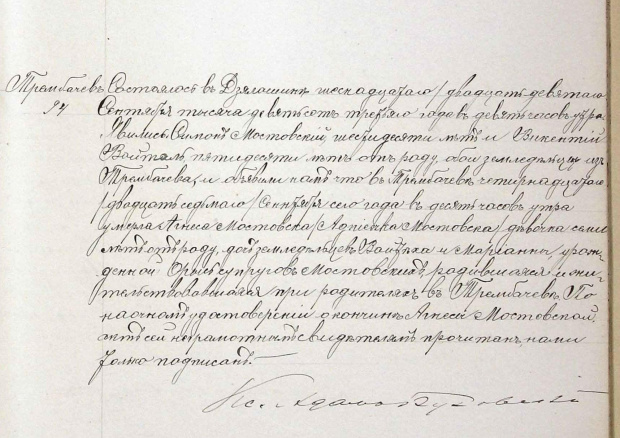 Трембачевъ Состоялось въ Дзялошинѣ шеснадцатаго / двадцать девятаго /
94 Сентября тысяча девятьсотъ третьяго года въ девять часовъ утра.
Явились Симонъ Мостовскій, шестидесяти лѣтъ и Викентій
пятидесяти лѣтъ отъ роду, оба земледѣльцы изъ
Трембачева, и объявили намъ что въ Трембачевѣ четирнадцатаго
/ двадцать седьмаго / Сентября сего года въ десять часовъ утра
умерла Агнеса Мостовска / Агнешка Мостовска / дѣвочка семи
лѣтъ отъ роду, дочь земледѣльцевъ и Маріанны, урож-
денной супруговъ Мостовскихъ, родившаяся и жи-
тельствовавшая при родителяхъ въ Трембачевѣ. По
наочномъ удостовереніи о кончинѣ Агнесы Мостовской,
актъ сей неграмотнымъ свидѣтелямъ прочитанъ, нами
только подписанъ.
Кс. Адамъ